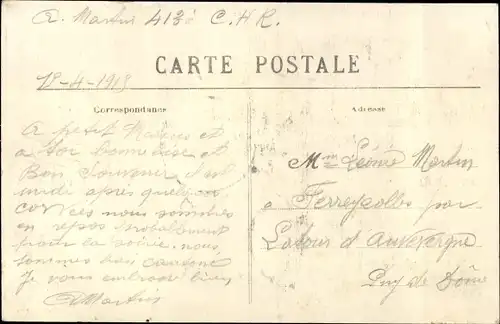 A. Martin 413e C.H.R.
CARTE POSTALE
18-4-1918
Correspondance
Adresse
A petit et
a toi bonne et
Bon Souvenir
midi après quelques
corvées nous sommes
en repos probablement
pour la soirée. nous
sommes bien cantoné
Je vous embrasse bien
AMartin
Mme Léonie Martin
a Ferreyrolles par
Latour d'Auvergne
Puy de Dôme